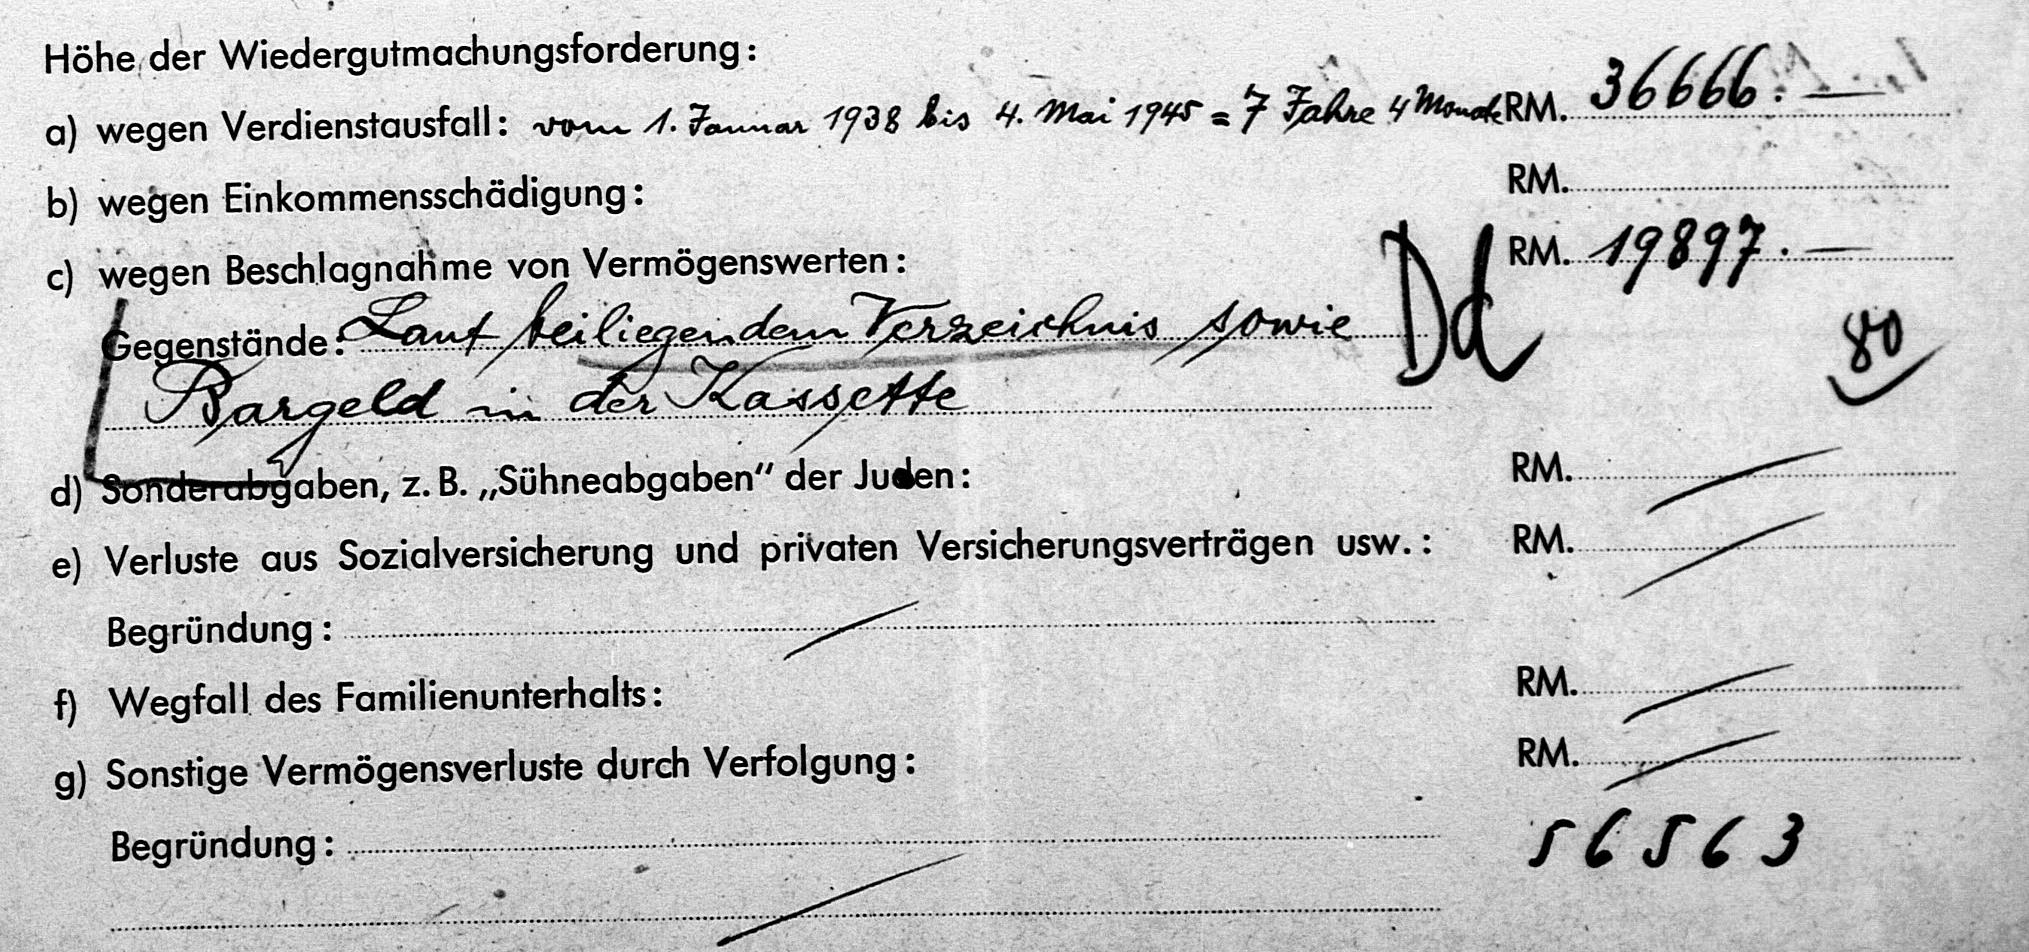 Höhe der Wiedergutmachungsforderung:
a) wegen Verdienstausfall: vom 1. Januar 1938 bis 4. Mai 1945 = 7 Jahre 4 Monate RM. 36666.—
b) wegen Einkommensschädigung: RM.
c) wegen Beschlagnahme von Vermögenswerten: RM. 19897.—
Gegenstände: Laut beiliegendem Verzeichnis sowie
Bargeld in der Kassette
80
d) Sonderabgaben, z. B. „Sühneabgaben“ der Juden: RM.
e) Verluste aus Sozialversicherung und privaten Versicherungsverträgen usw.: RM.
Begründung:
f) Wegfall des Familienunterhalts: RM.
g) Sonstige Vermögensverluste durch Verfolgung: RM.
Begründung: 56563